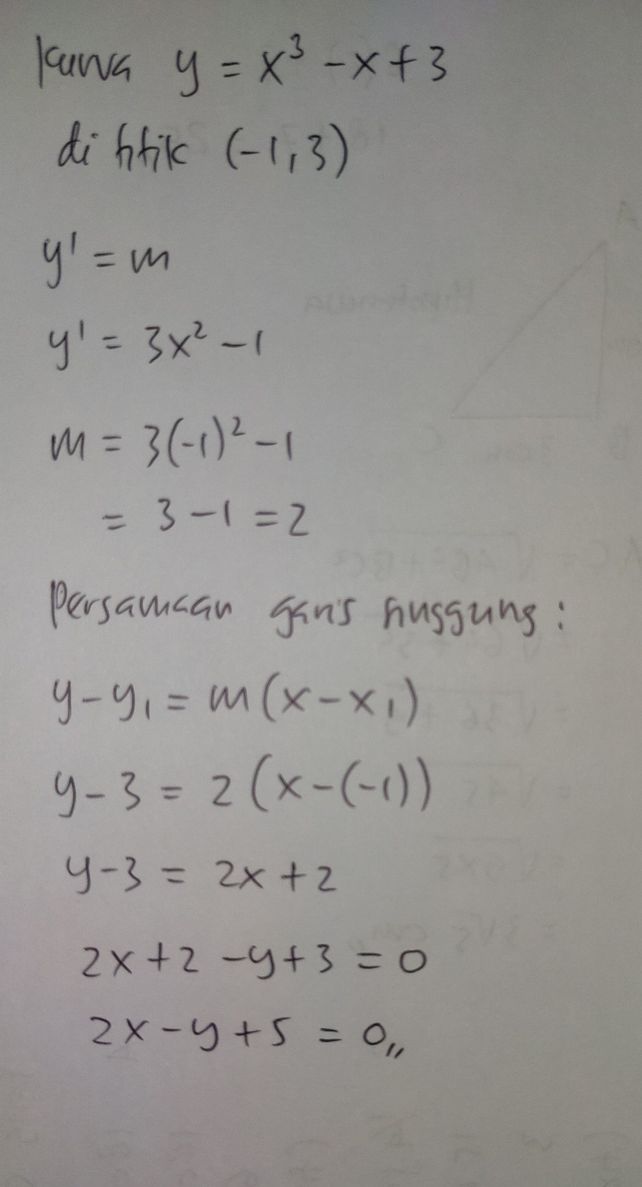 kurva y = x³ - x + 3
di titik (-1,3)
y' = m
y' = 3x² - 1
m = 3(-1)² - 1
= 3 - 1 = 2
Persamaan garis singgung :
y - y₁ = m(x - x₁)
y - 3 = 2(x - (-1))
y - 3 = 2x + 2
2x + 2 - y + 3 = 0
2x - y + 5 = 0,,